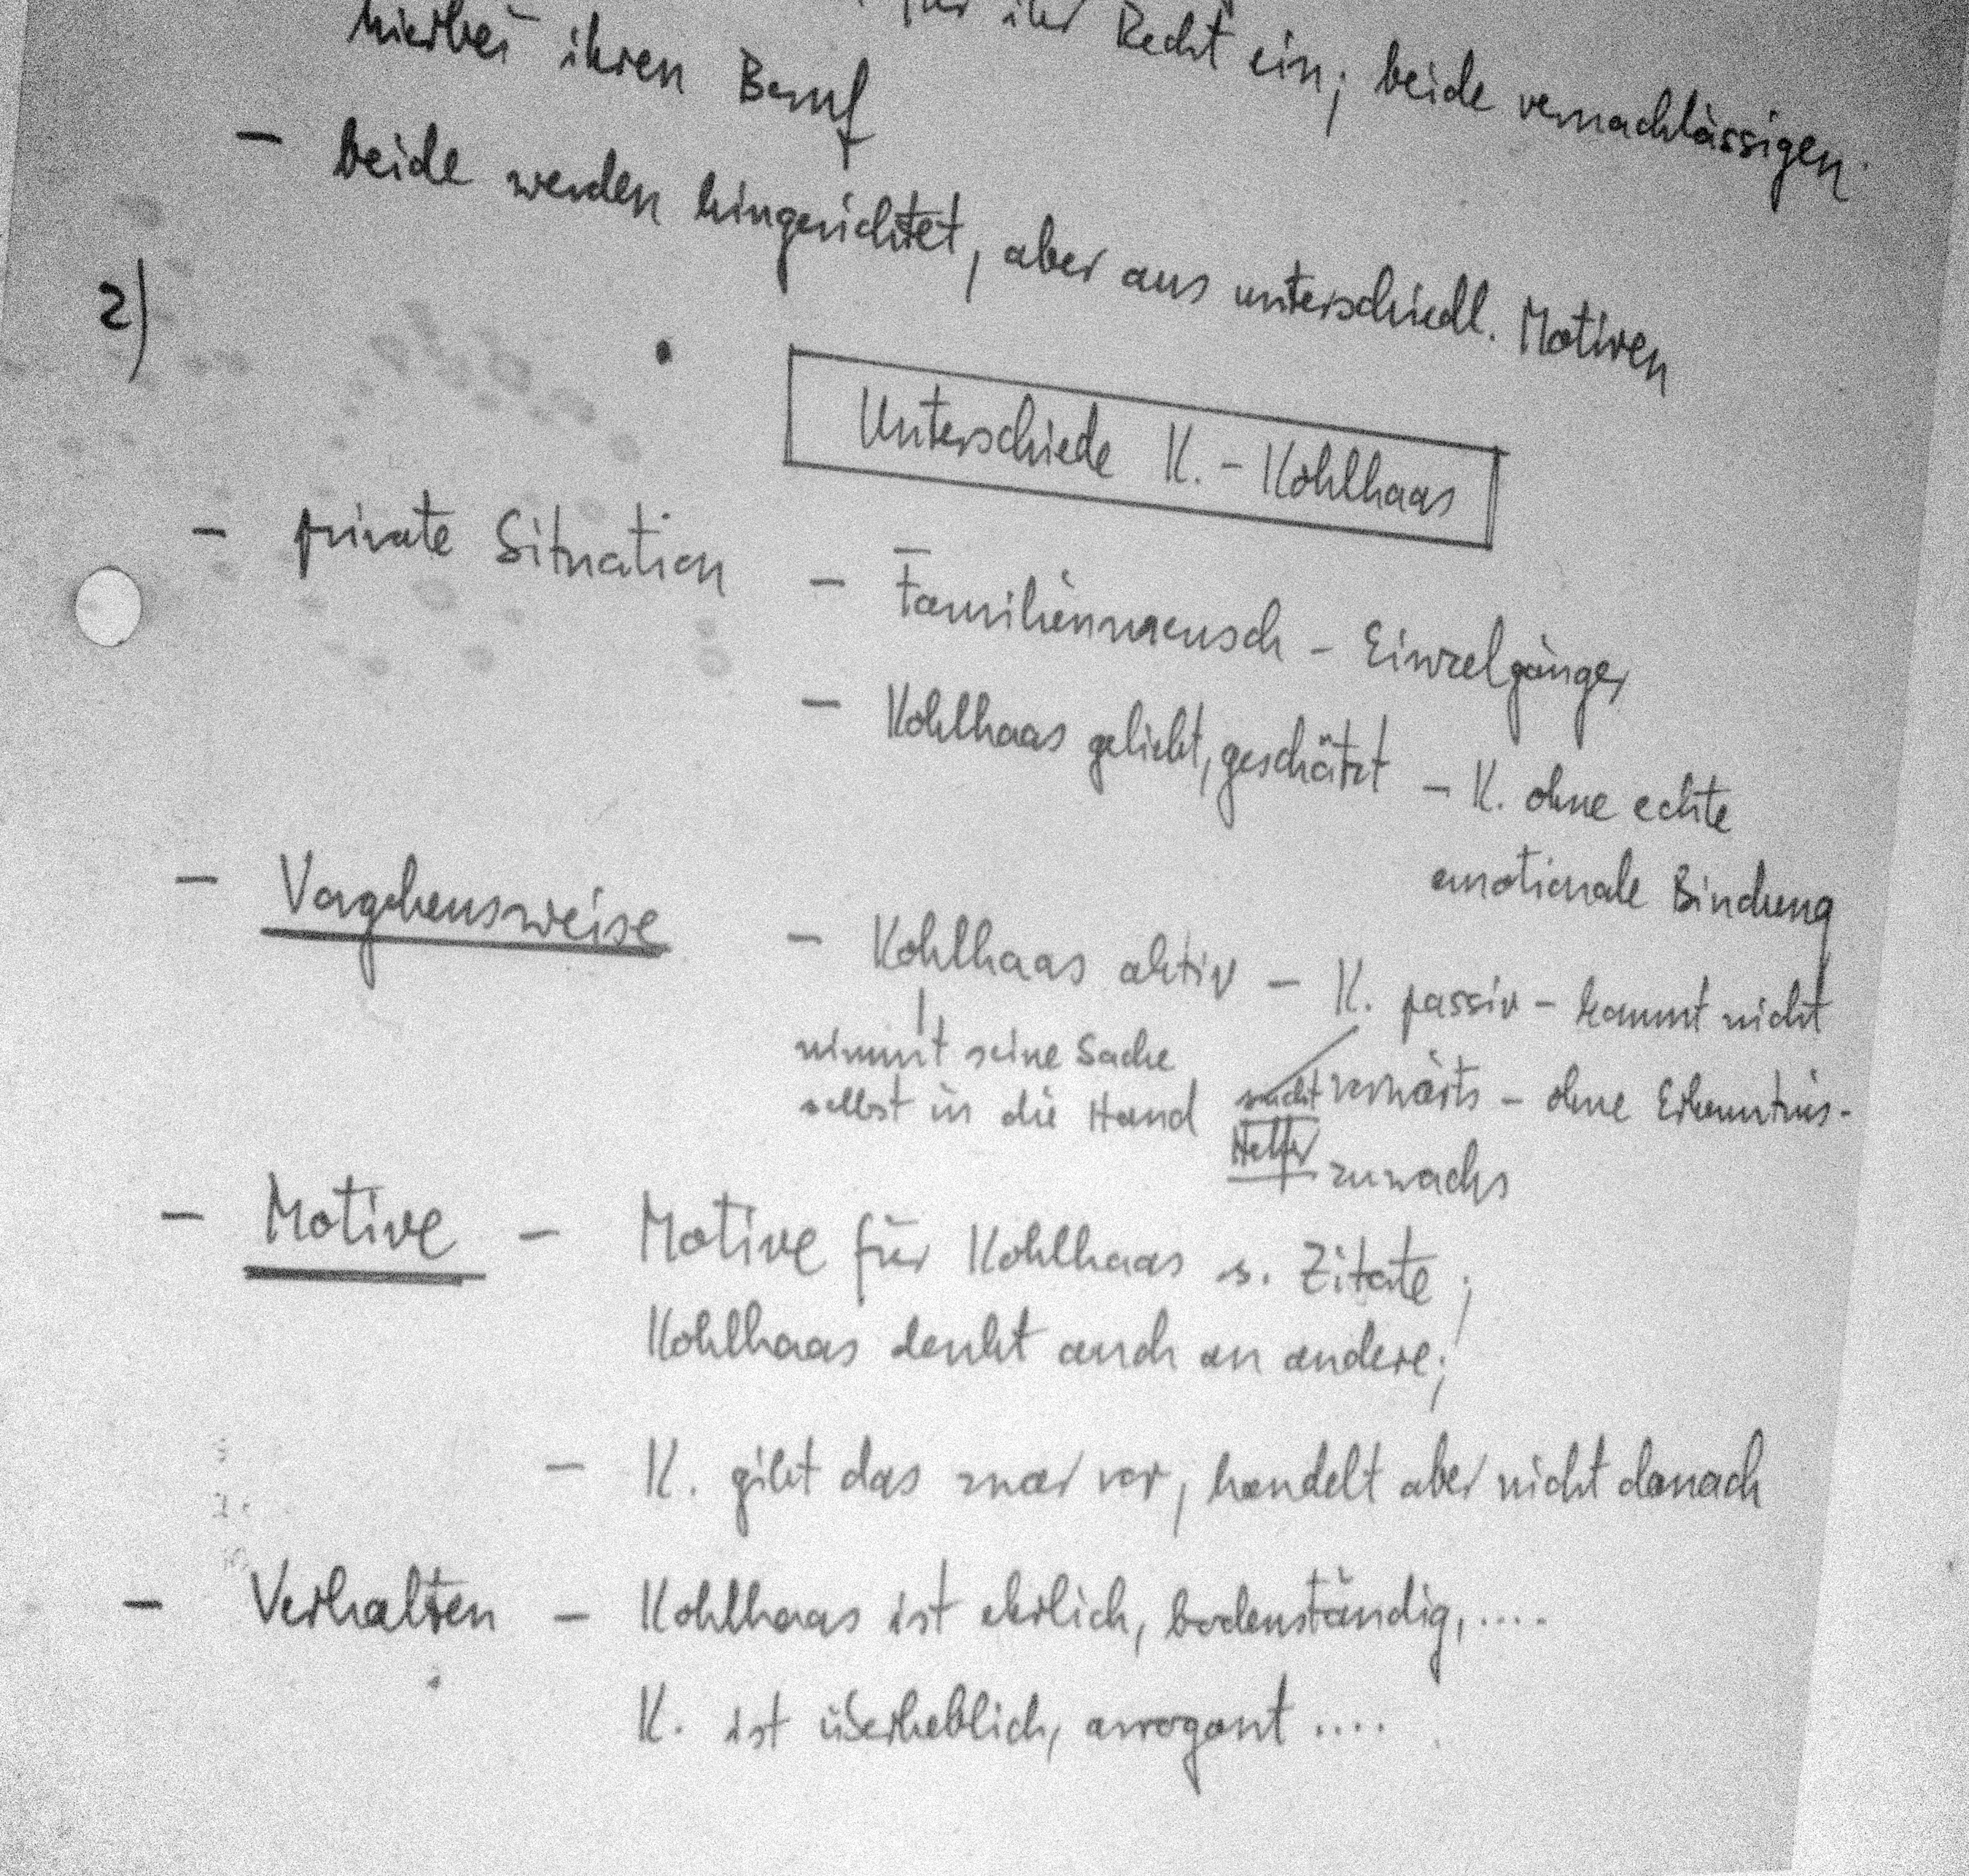 für ihr Recht ein; beide vernachlässigen
hierbei ihren Beruf
- beide werden hingerichtet, aber aus unterschiedl. Motiven
2)
Unterschiede K. - Kohlhaas
- private Situation - Familienmensch - Einzelgänger
- Kohlhaas geliebt, geschätzt - K. ohne echte
emotionale Bindung
- Vorgehensweise - Kohlhaas aktiv - K. passiv - kommt nicht
nimmt seine Sache sucht vorwärts - ohne Erkenntnis-
selbst in die Hand Helfer zuwachs
- Motive - Motive für Kohlhaas s. Zitate;
Kohlhaas denkt auch an andere;
- K. gibt das zwar vor, handelt aber nicht danach
- Verhalten - Kohlhaas ist ehrlich, bodenständig, ....
K. ist überheblich, arrogant ....